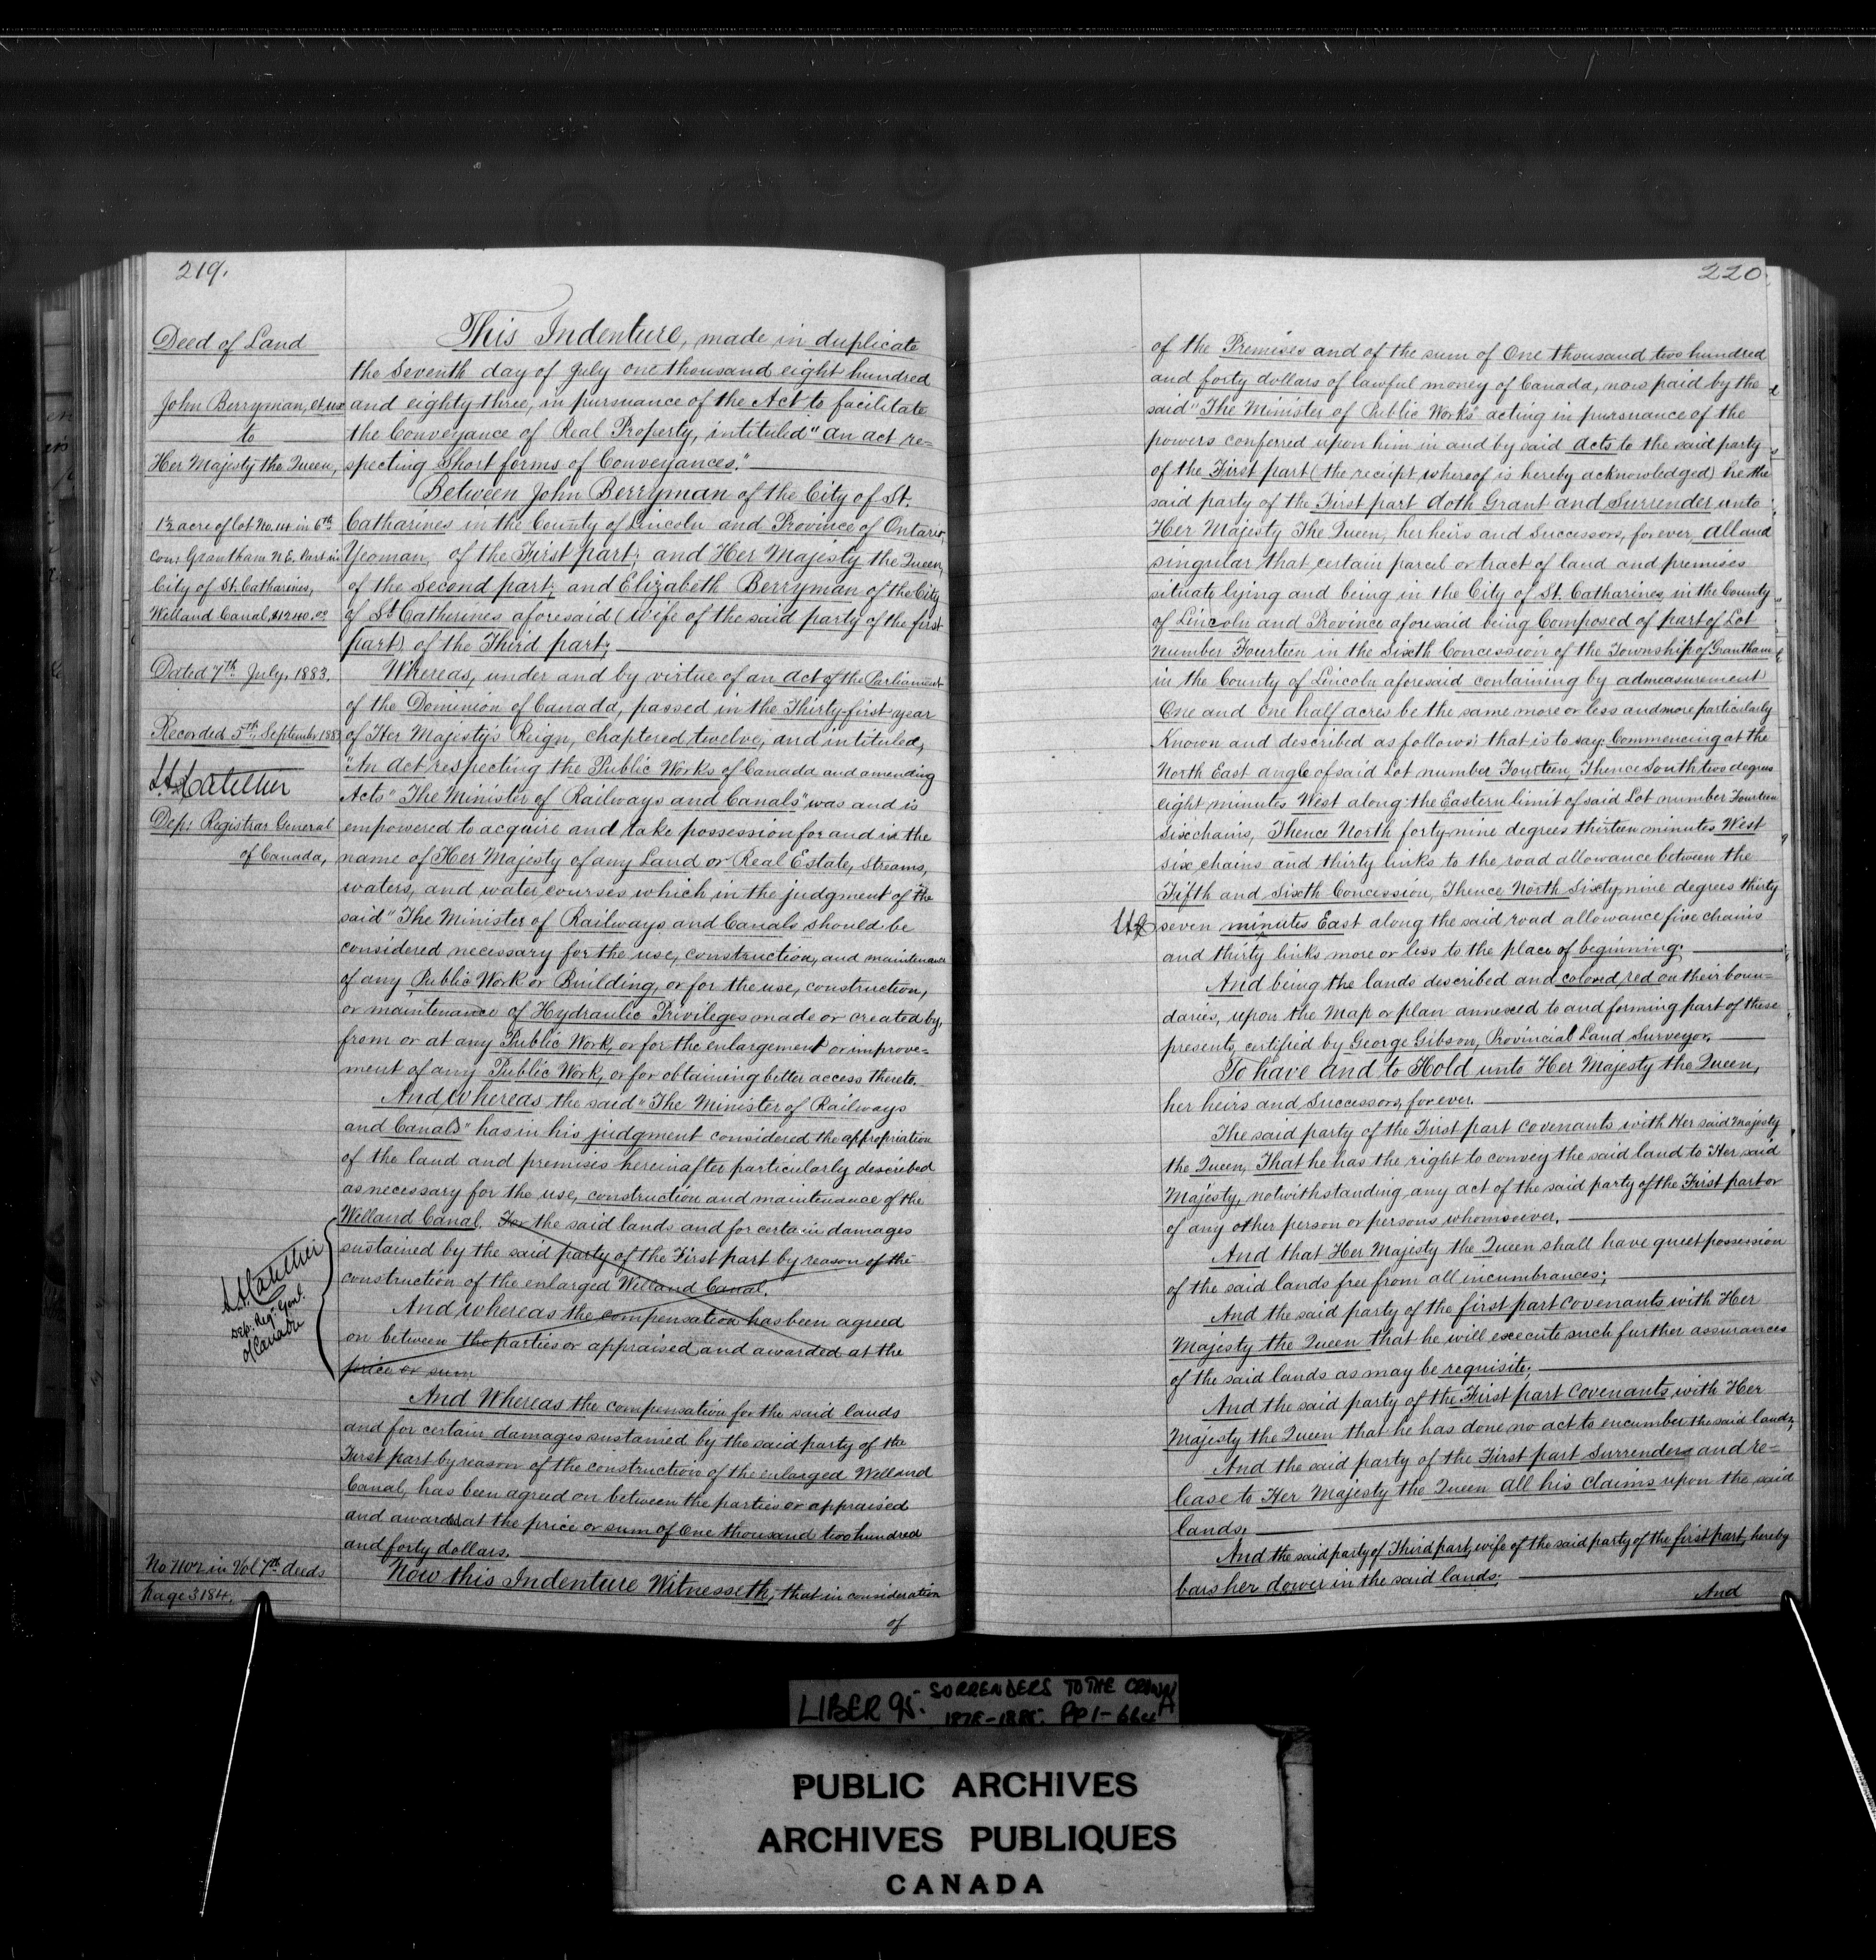 219.
Deed of Land
John Berryman, et ux
to
Her Majesty the Queen,
1½ acre of lot No. 14 in 6th
con: Grantham N.E. Part in
City of St. Catharines,
Welland Canal, $1240.00
Dated 7th July, 1883.
Recorded 5th September 1883
Dep: Registrar General
of Canada,
Dep. Reg. Genl.
of Canada
No 1102 in Vol 7th deeds
Page 3184.
This Indenture, made in duplicate
the Seventh day of July one thousand eight hundred
and eighty three, in pursuance of the Act to facilitate
the Conveyance of Real Property, intituled "An act re=
specting Short forms of Conveyances."
Between John Berryman of the City of St.
Catharines in the County of Lincoln and Province of Ontario,
Yeoman, of the First part; and Her Majesty the Queen,
of the Second part; and Elizabeth Berryman of the City
of St Catherines aforesaid (Wife of the said party of the first
part) of the Third part;
Whereas, under and by virtue of an Act of the Parliament
of the Dominion of Canada, passed in the Thirty-first year
of Her Majesty's Reign, chaptered twelve, and intituled,
"An Act respecting the Public Works of Canada and amending
Acts" "The Minister of Railways and Canals" was and is
empowered to acquire and take possession for and in the
name of Her Majesty of any Land or Real Estate, Streams,
waters, and water courses which in the judgment of the
said "The Minister of Railways and Canals should be
considered necessary for the use, construction, and maintenance
of any Public Work or Building, or for the use, construction,
or maintenance of Hydraulic Privileges made or created by,
from or at any Public Work, or for the enlargement or improve=
ment of any Public Work, or for obtaining better access thereto.
And Whereas the said "The Minister of Railways
and Canals" has in his judgment considered the appropriation
of the land and premises hereinafter particularly described
as necessary for the use, construction and maintenance of the
Welland Canal. For the said lands and for certain damages
sustained by the said party of the First part by reason of the
construction of the enlarged Welland Canal.
And whereas the compensation has been agreed
on between the parties or appraised and awarded at the
price or sum
And Whereas the compensation for the said lands
and for certain damages sustained by the said party of the
First part by reason of the construction of the enlarged Welland
Canal, has been agreed on between the parties or appraised
and awarded at the price or sum of One thousand two hundred
and forty dollars.
Now this Indenture Witnesseth, that in consideration
of
220.
of the Premises and of the sum of One thousand two hundred
and forty dollars of lawful money of Canada, now paid by the
said "The Minister of Public Works" acting in pursuance of the
powers conferred upon him in and by said Acts to the said party
of the First part (the receipt whereof is hereby acknowledged) he the
said party of the First part doth Grant and Surrender unto
Her Majesty The Queen, her heirs and Successors, for ever, All and
singular that certain parcel or tract of land and premises
situate lying and being in the City of St. Catharines, in the County
of Lincoln and Province aforesaid being Composed of part of Lot
Number Fourteen in the Sixth Concession of the Township of Grantham
in the County of Lincoln aforesaid containing by admeasurement
One and One half acres be the same more or less and more particularly
Known and described as follows: that is to say: Commencing at the
North East angle of said Lot number Fourteen, Thence South two degrees
eight minutes West along the Eastern limit of said Lot number Fourteen
Six chains, Thence North forty nine degrees thirteen minutes West
six chains and thirty links to the road allowance between the
Fifth and Sixth Concession, Thence North Sixty nine degrees thirty
seven minutes East along the said road allowance five chains
and thirty links more or less to the place of beginning.
And being the lands described and colored red on their boun=
daries, upon the Map or plan annexed to and forming part of these
presents, certified by George Gibson, Provincial Land Surveyor.
To have and to Hold unto Her Majesty the Queen,
her heirs and Successors, for ever.
The said party of the First part covenants with Her said Majesty
the Queen, That he has the right to convey the said land to Her said
Majesty, notwithstanding any act of the said party of the First part or
of any other person or persons whomsoever.
And that Her Majesty the Queen shall have quiet possession
of the said lands free from all incumbrances;
And the said party of the first part covenants with Her
Majesty the Queen that he will execute such further assurances
of the said lands as may be requisite;
And the said party of the First part Covenants with Her
Majesty the Queen that he has done no act to encumber the said lands,
And the said party of the First part Surrenders and re=
lease to Her Majesty the Queen all his claims upon the said
lands.
And the said party of Third part, wife of the said party of the first part, hereby
bars her dower in the said lands;
And
LIBER 95. SORRENDERS TO THE CROWN
PUBLIC ARCHIVES
ARCHIVES PUBLIQUES
CANADA